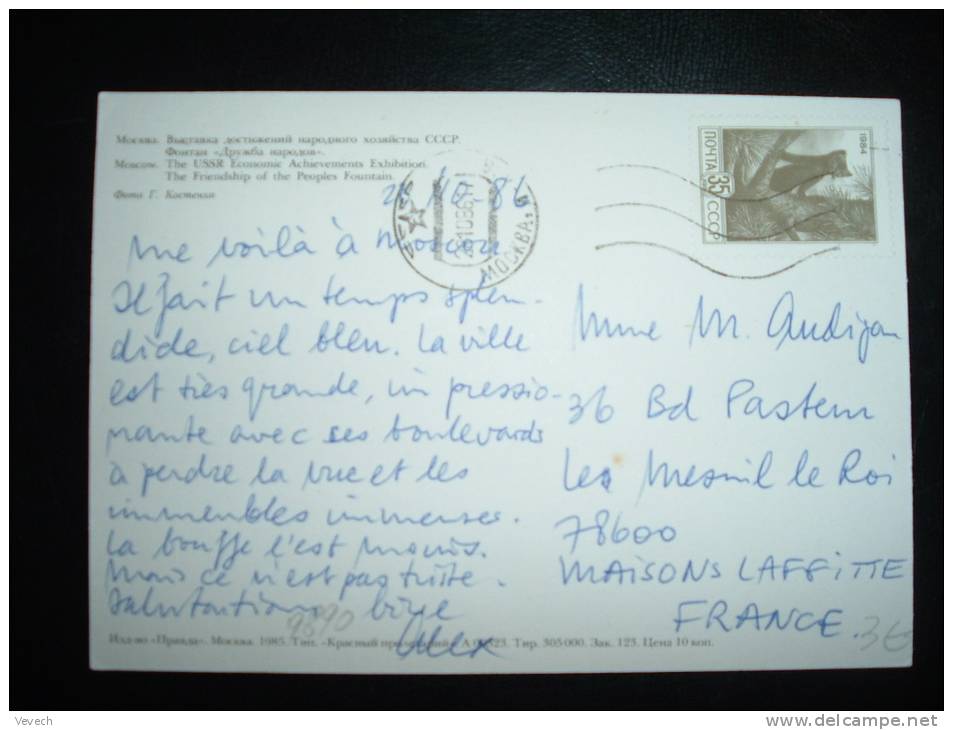 Москва. Выставка достижений народного хозяйства СССР.
Фонтан «Дружба народов».
Moscow. The USSR Economic Achievements Exhibition.
The Friendship of the Peoples Fountain.
Фото Г. Костенко
-10-86
МОСКВА,
1984
ПОЧТА 35 СССР
me voilà à Moscou
Il fait un temps splen-
dide, ciel bleu. La ville
est très grande, impressio-
nante avec ses boulevards
à perdre la vue et les
immeubles immenses.
La bouffe l'est moins.
Mais ce n'est pas triste.
Salutations bise
Alex
Mme M. Audijan
36 Bd Pasteur
Le Mesnil le Roi
78600
MAISONS LAFFITTE
FRANCE.
9890
3€
Изд-во «Правда». Москва. 1985. Тип. «Красный Тир. 305 000. Зак. 125. Цена 10 коп.
Vevech
www.delcampe.net